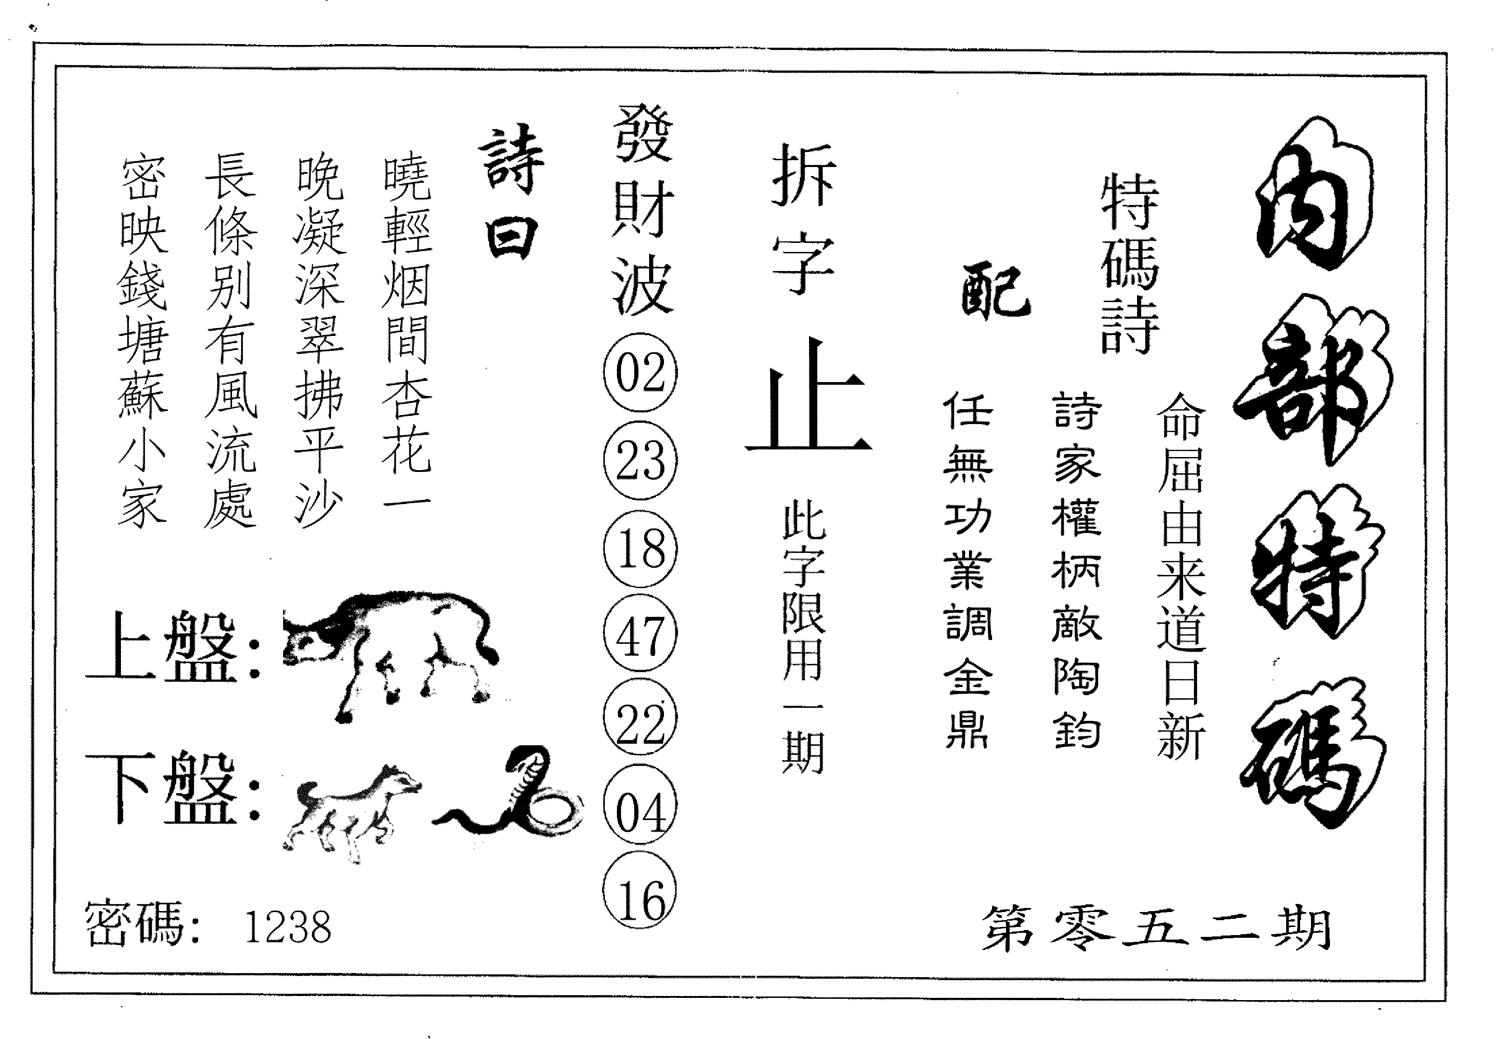 內部特碼
特碼詩
命屈由来道日新
詩家權柄敵陶鈞
任無功業調金鼎
配
第零五二期
拆字
止
此字限用一期
發財波
02
23
18
47
22
04
16
詩曰
曉輕烟間杏花一
晚凝深翠拂平沙
長條别有風流處
密映錢塘蘇小家
上盤：
下盤：
密碼： 1238